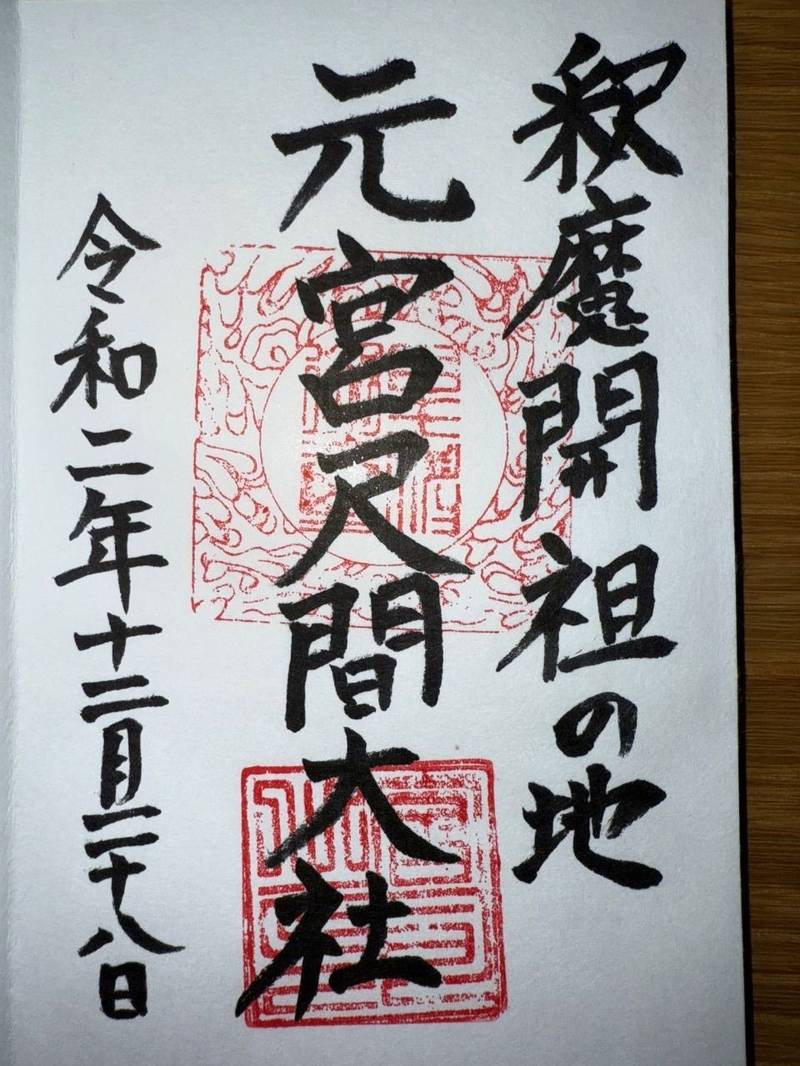 釈魔開祖の地
元宮尺間大社
令和二年十二月二十八日